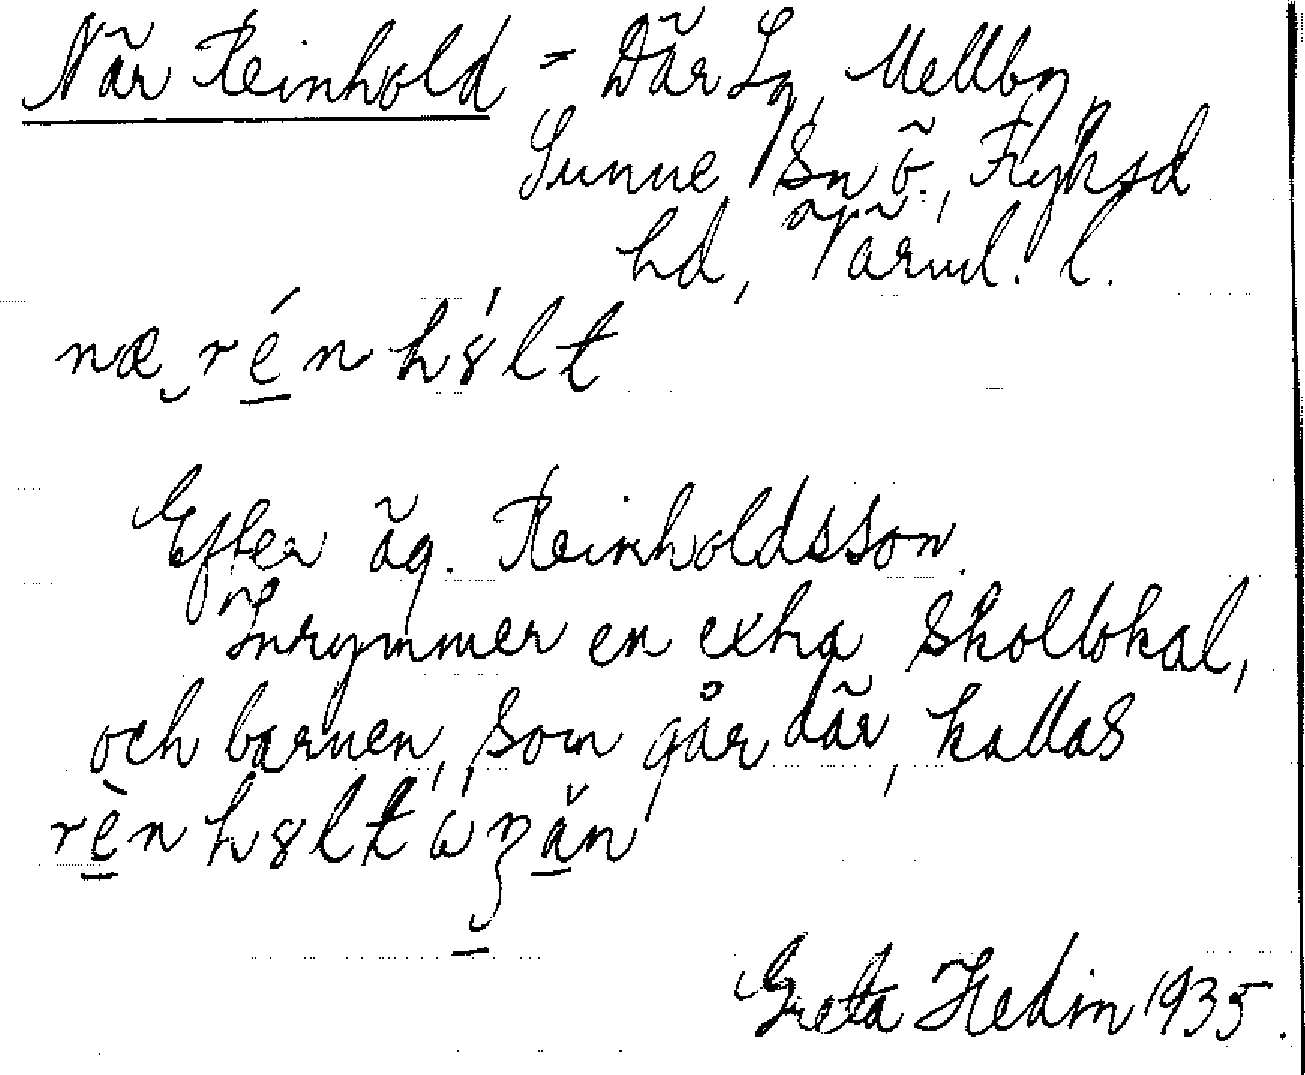 När Reinhold = Där Lg, Mellby,
Sunne sn ö., Fryksd
hd, Värml. l.
næ rén hȣ́lt
Efter äg. Reinholdsson.
Inrymmer en extra skollokal,
och barnen, som går där, kallas
rèn hȣlt
Greta Hedin 1935.